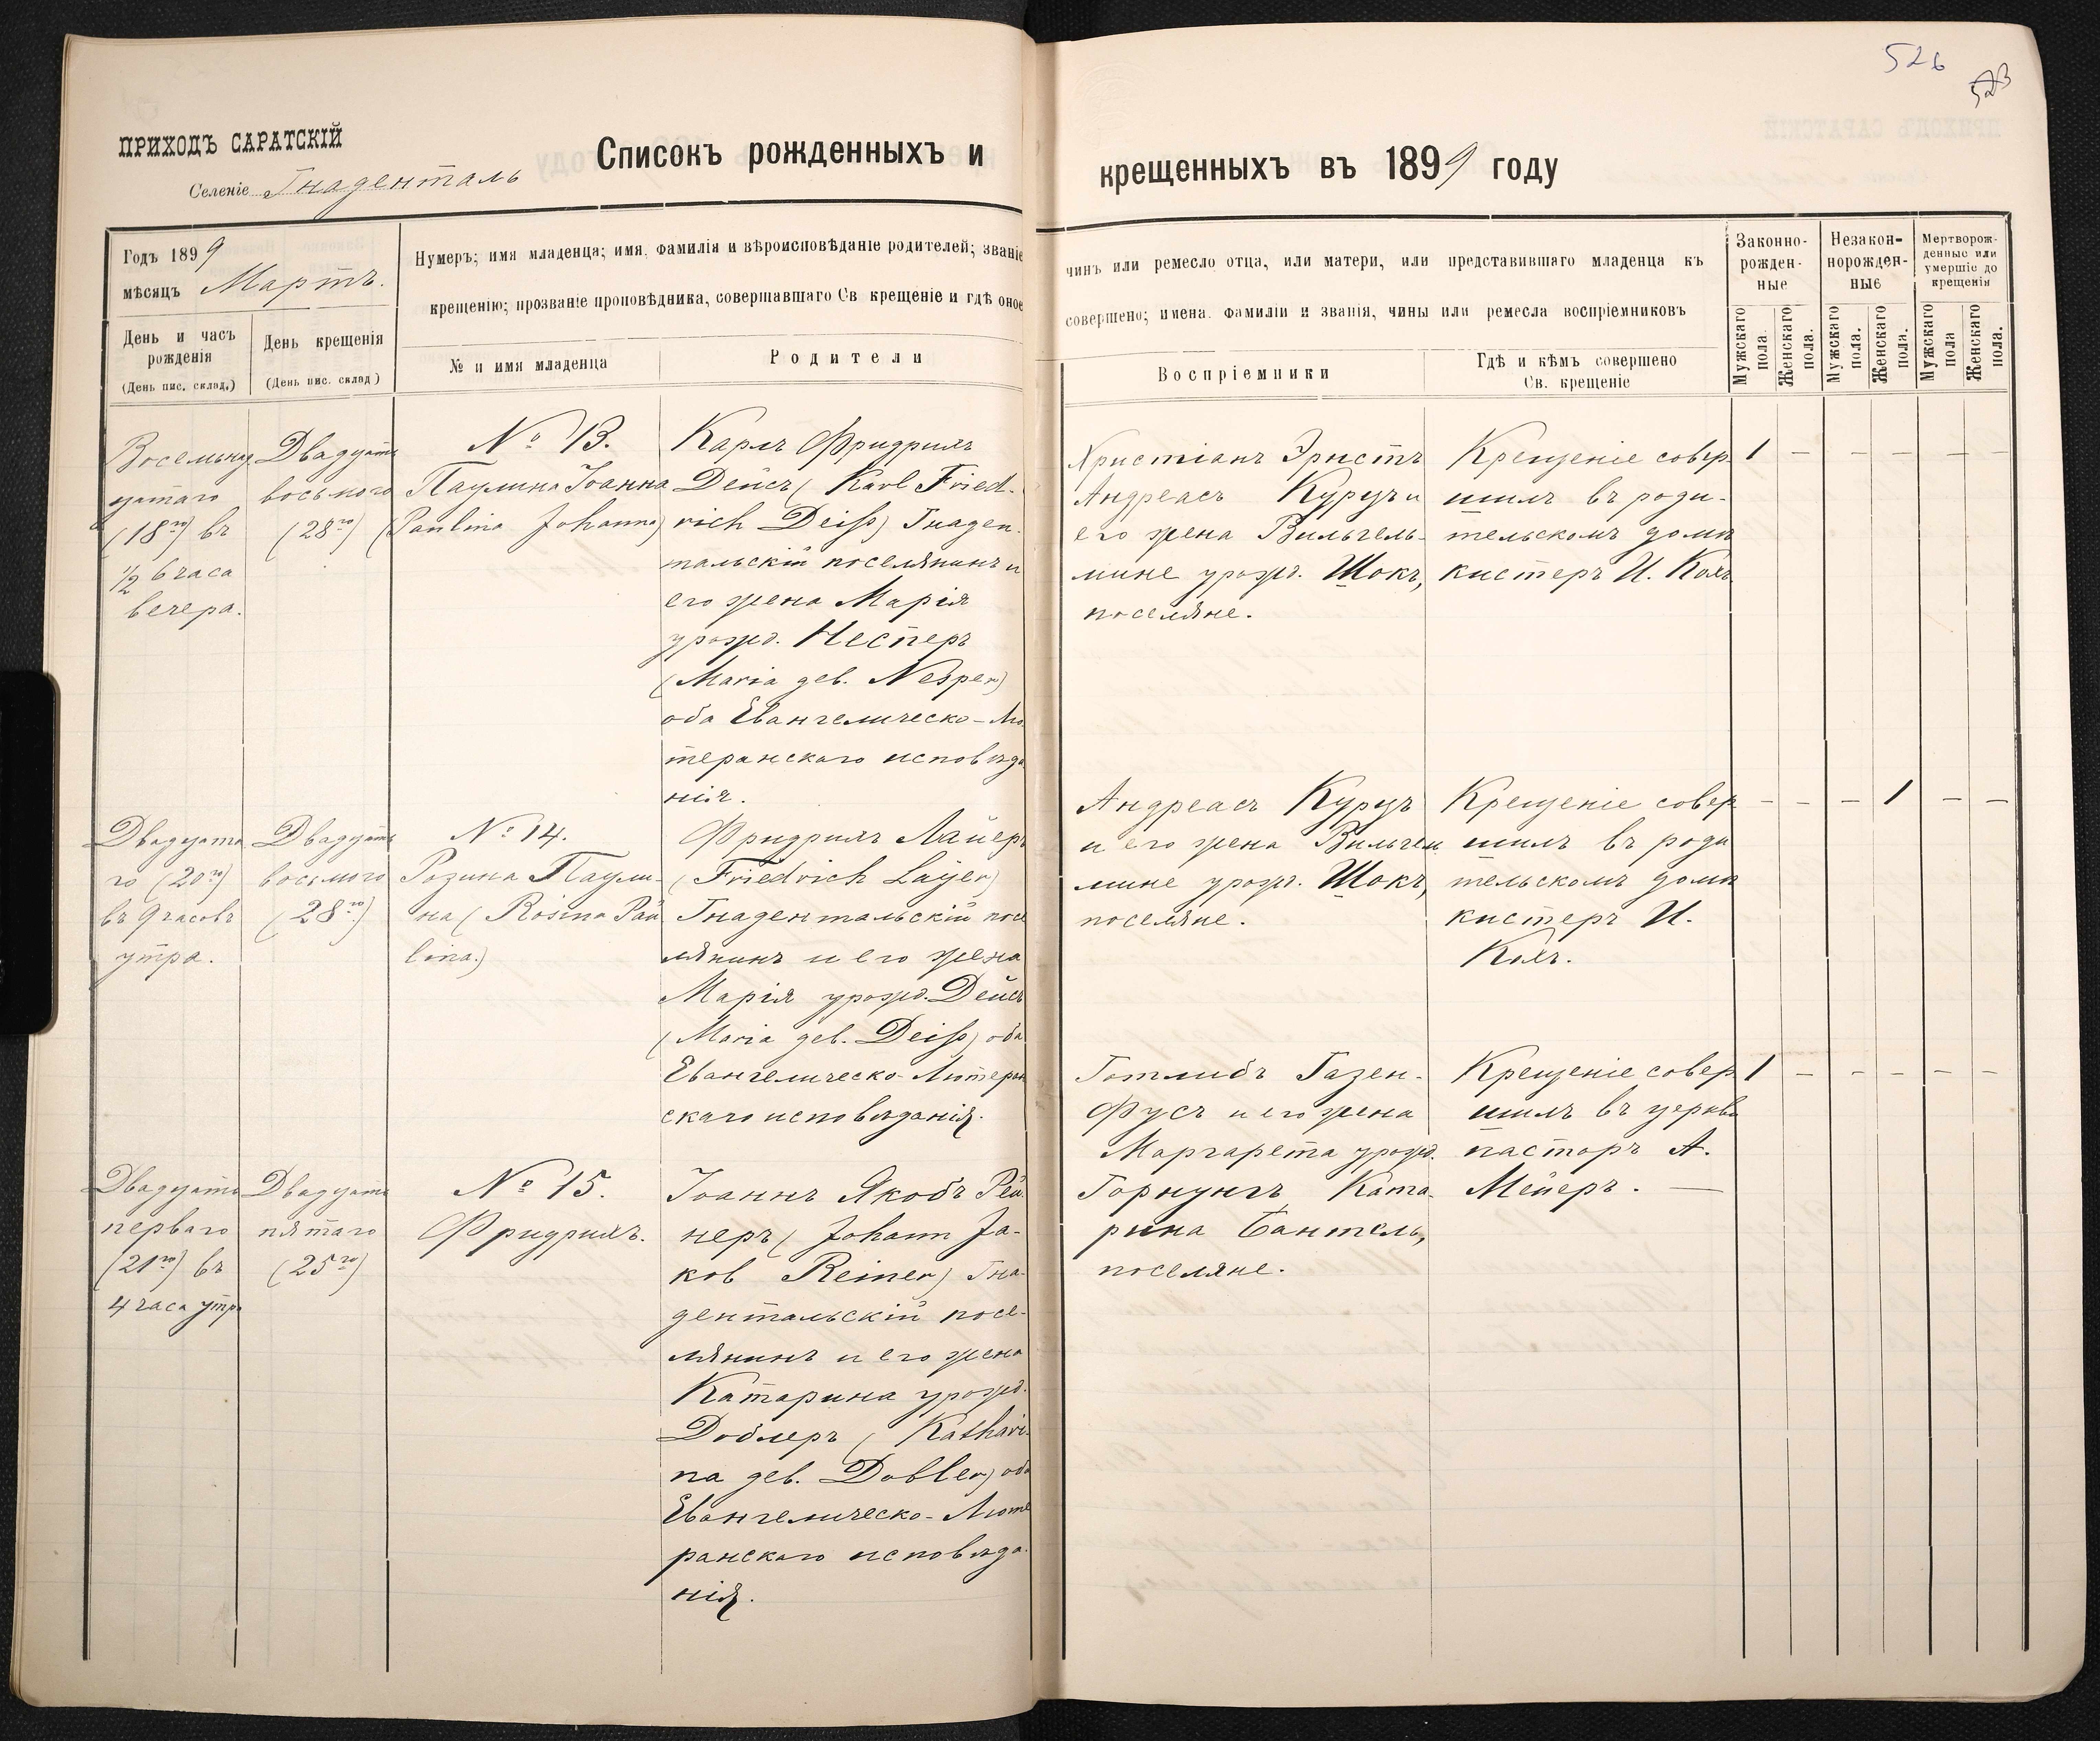 526
523
ПРИХОДЪ САРАТСКІЙ
Селеніе Гнаденталь
Списокъ рожденныхъ и
крещенныхъ въ 1899 году
Годъ 1899
мѣсяцъ Мартъ.
День и часъ
рожденія
(День пис. склад.)
День крещенія
(День пис. склад)
Нумеръ; имя младенца; имя, фамилія и вѣроисповѣданіе родителей; званіе
крещенію; прозваніе проповѣдника, совершавшаго Св крещеніе и гдѣ оное
№ и имя младенца
Родители
чинъ или ремесло отца, или матери, или представившаго младенца къ
совершено; имена. фамиліи и званія, чины или ремесла воспріемниковъ
Воспріемники
Гдѣ и кѣмъ совершено
Св. крещеніе
Законно-
рожден-
ные
Незакон-
норожден-
ные
Мертворож-
денные или
умершіе до
крещенія
Мужскаго
пола.
Женскаго
пола.
Мужскаго
пола.
Женскаго
пола.
Мужскаго
пола
Женскаго
пола.
Восемьнад
цатаго
(18го) въ
1/2 6 часа
вечера.
Двадцать
восьмого
(28го)
№ 13.
Паулина Іоанна
(Paulina Johanna)
Карлъ Фридрихъ
Дейсъ (Karl Fried-
rich Deiß) Гнаден-
тальскій поселянинъ и
его жена Марія
урожд. Неспер
(Maria geb. Nesper)
оба Евангелическо-Лю
теранскаго исповѣда
нія.
Христіанъ Эрнстъ
Андреасъ Курцъ и
его жена Вильгель-
мине урожд. Шокъ,
поселяне.
Крещеніе совер
шилъ въ роди-
тельскомъ домѣ
кистеръ И. Кохъ
1 – – – – –
Двадцата
го (20го)
въ 9 часовъ
утра.
Двадцать
восьмого
(28го)
№ 14.
Розина Паули-
на (Rosina Pau
lina.)
Фридрихъ Лайеръ
(Friedrich Layer)
Гнадентальскій посе
лянинъ и его жена
Марія урожд. Дейсъ
(Maria geb. Deiß) оба
Евангелическо-Лютеран
скаго исповѣданія.
Андреасъ Курцъ
и его жена Вильгель
мине урожд. Шокъ,
поселяне.
Крещеніе совер
шилъ въ роди
тельскомъ домѣ
кистеръ И.
Кохъ.
– – – 1 – –
Двадцать
перваго
(21го) въ
4 часа утра
Двадцать
пятаго
(25го)
№ 15.
Фридрихъ.
Іоаннъ Якобъ Рей
неръ (Johann Ja-
kob Reiner) Гна-
дентальскій посе-
лянинъ и его жена
Катарина урожд.
Доблеръ (Kathari-
na geb. Dobler) оба
Евангелическо-Люте
ранскаго исповѣда
нія.
Готлибъ Газен-
фусъ и его жена
Маргарета урожд.
Горнунгъ Ката-
рина Бантель,
поселяне.
Крещеніе совер
шилъ въ церкви
пасторъ А.
Мейеръ. —
1 – – – – –